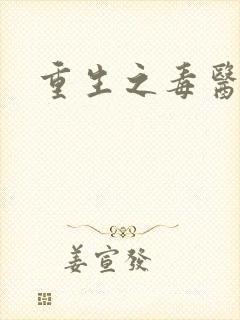 重生之毒醫
姜宣發